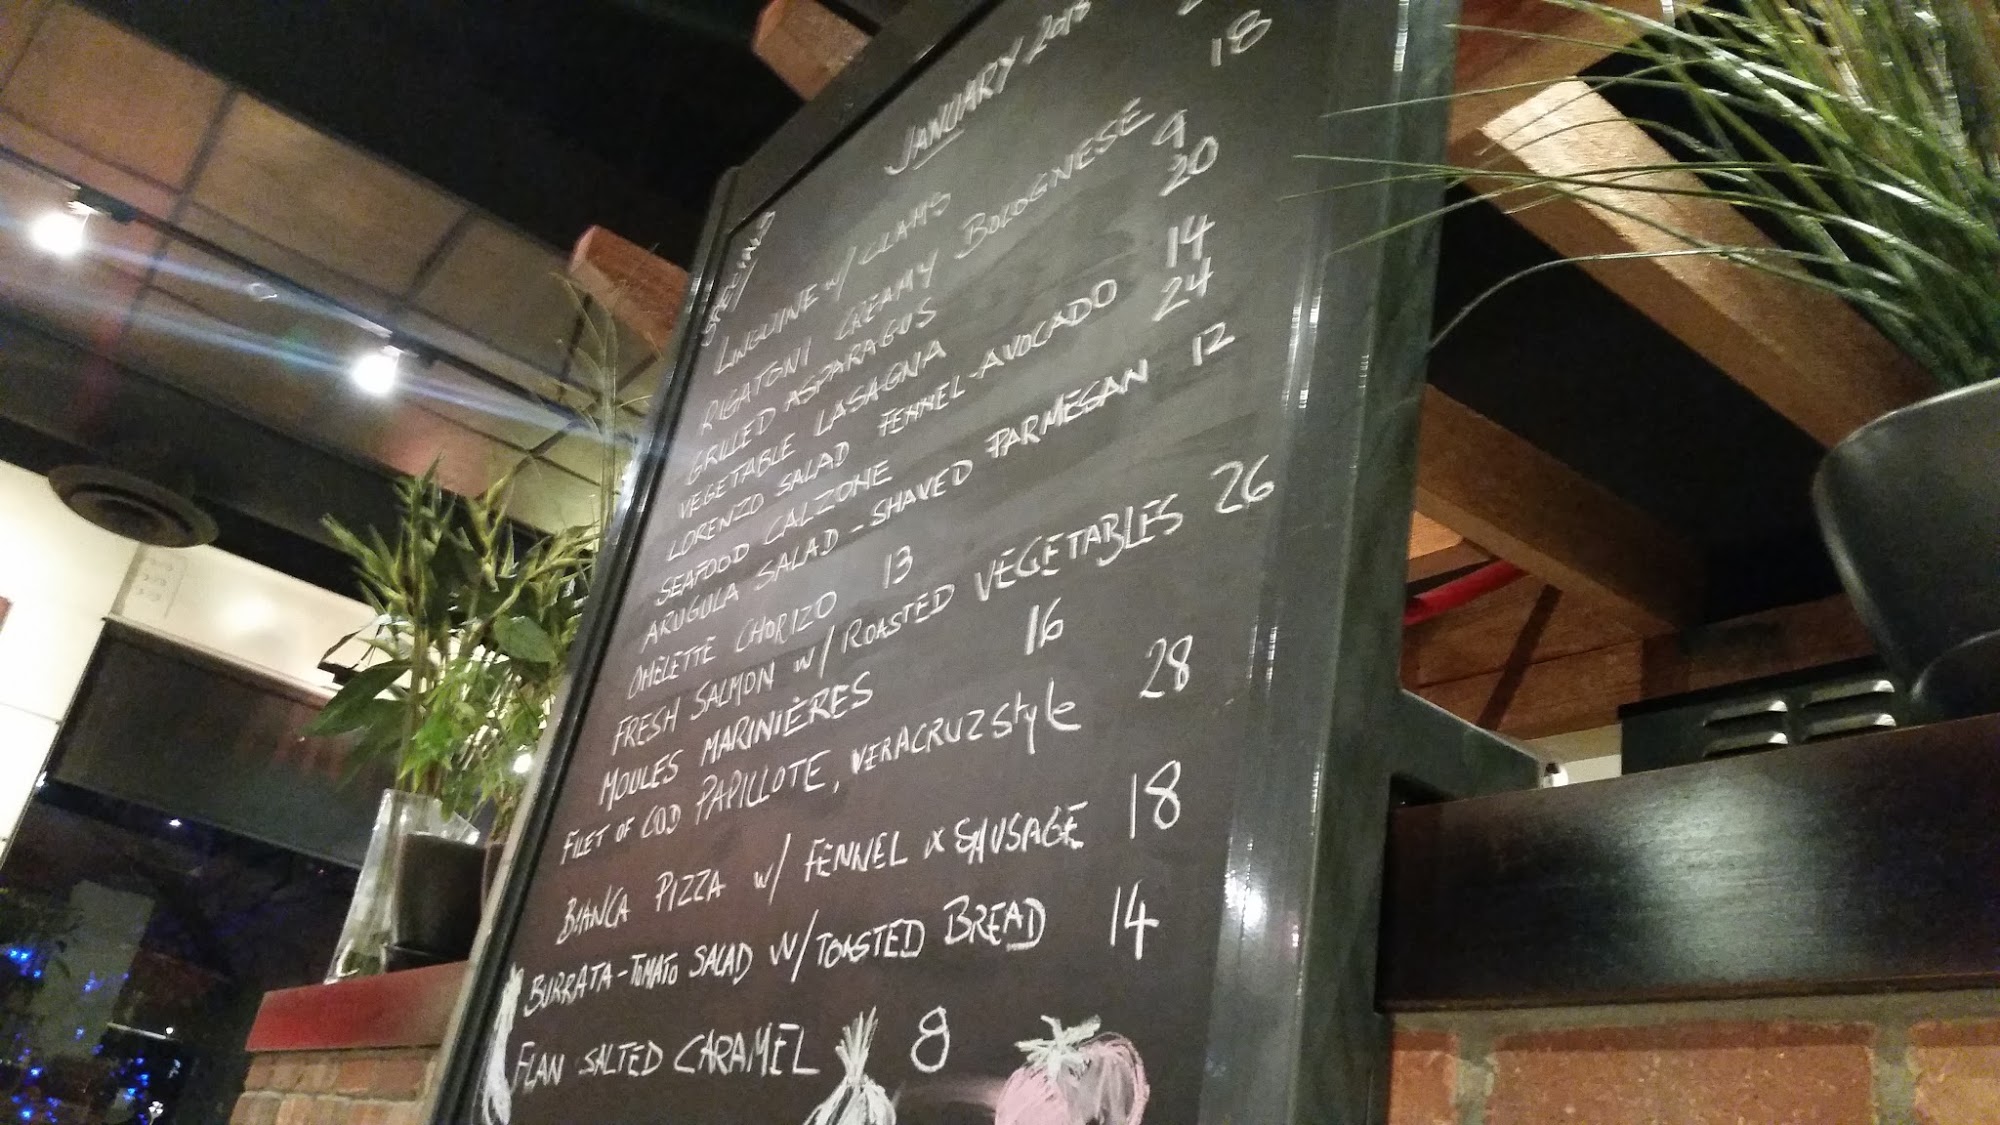 JANUARY
LINGUINE w/ CLAMS
RIGATONI CREAMY BOLOGNESE 18
GRILLED ASPARAGUS 9
VEGETABLE LASAGNA 20
LORENZO SALAD FENNEL-AVOCADO 14
SEAFOOD CALZONE 24
ARUGULA SALAD-SHAVED PARMESAN 12
OMELETTE CHORIZO 13
FRESH SALMON w/ ROASTED VEGETABLES 26
MOULES MARINIÈRES 16
FILET OF COD PAPILLOTE, VERACRUZ style 28
BIANCA PIZZA w/ FENNEL & SAUSAGE 18
BURRATA-TOMATO SALAD W/TOASTED BREAD 14
FLAN SALTED CARAMEL 8